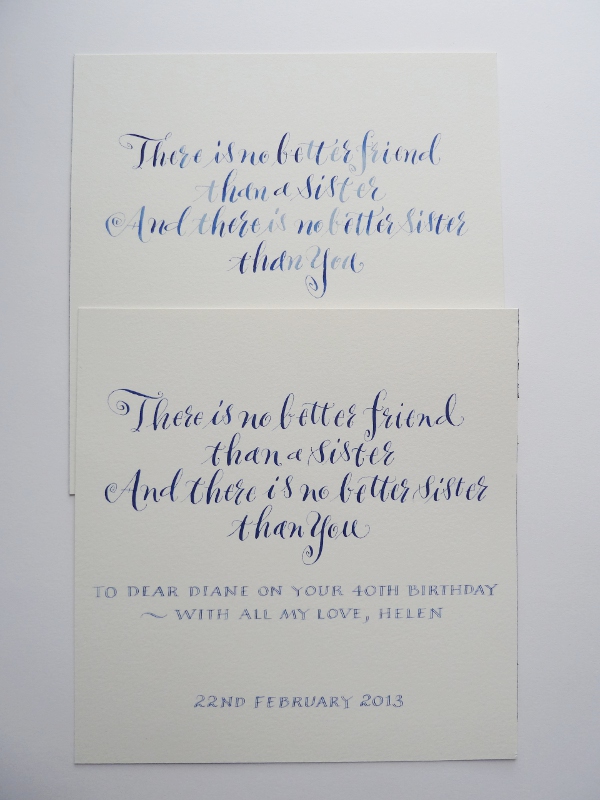 There is no better friend
than a sister
And there is no better sister
than You
There is no better friend
than a sister
And there is no better sister
than You
TO DEAR DIANE ON YOUR 40TH BIRTHDAY
~ WITH ALL MY LOVE, HELEN
22ND FEBRUARY 2013